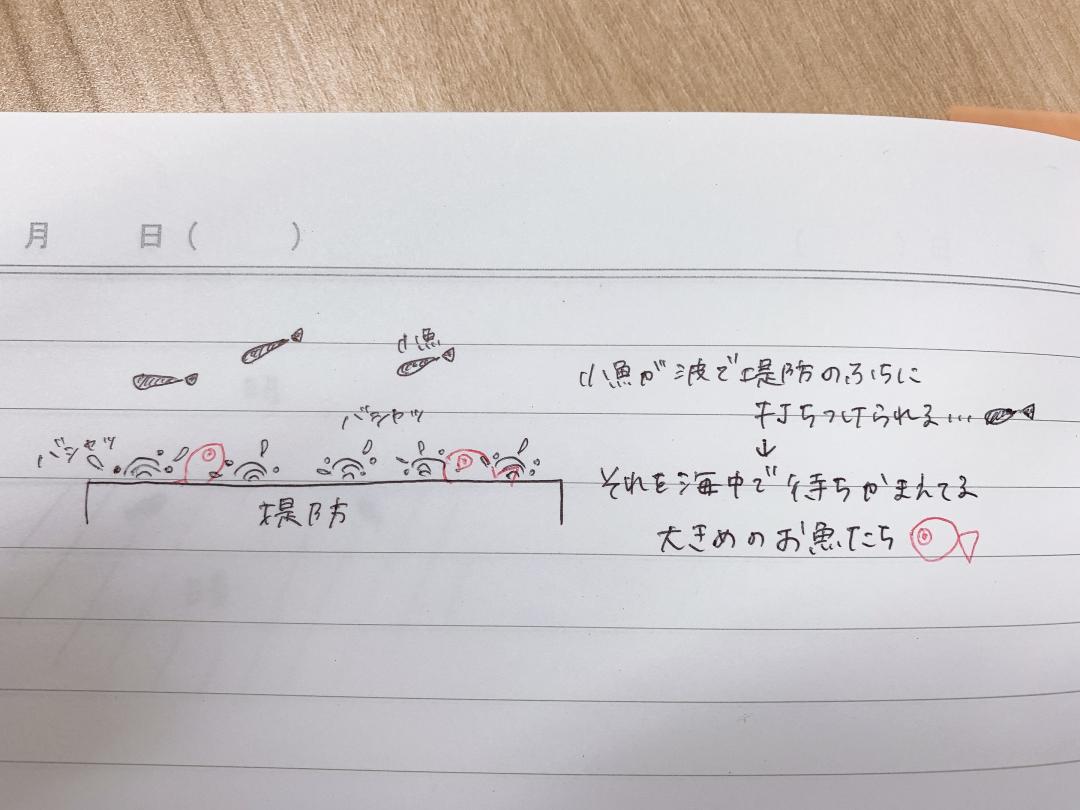 月 日( )
小魚
バシャッ
バシャッ
堤防
小魚が波で堤防のふちに
打ちつけられる…
↓
それを海中で待ちかまえてる
大きめのお魚たち